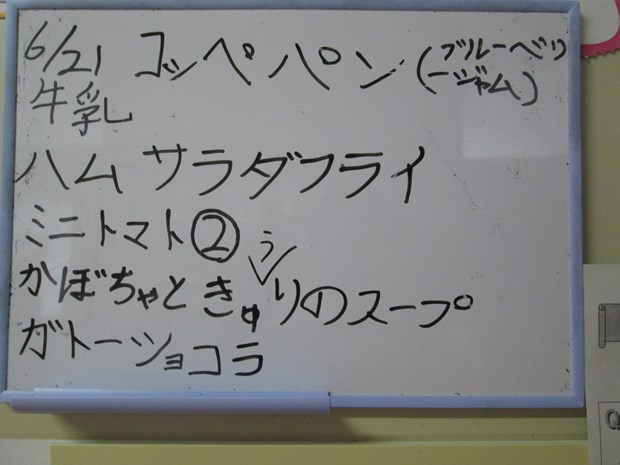 6/21 コッペパン(ブルーベリ
ージャム)
牛乳
ハムサラダフライ
ミニトマト②
かぼちゃときゅうりのスープ
ガトーショコラ